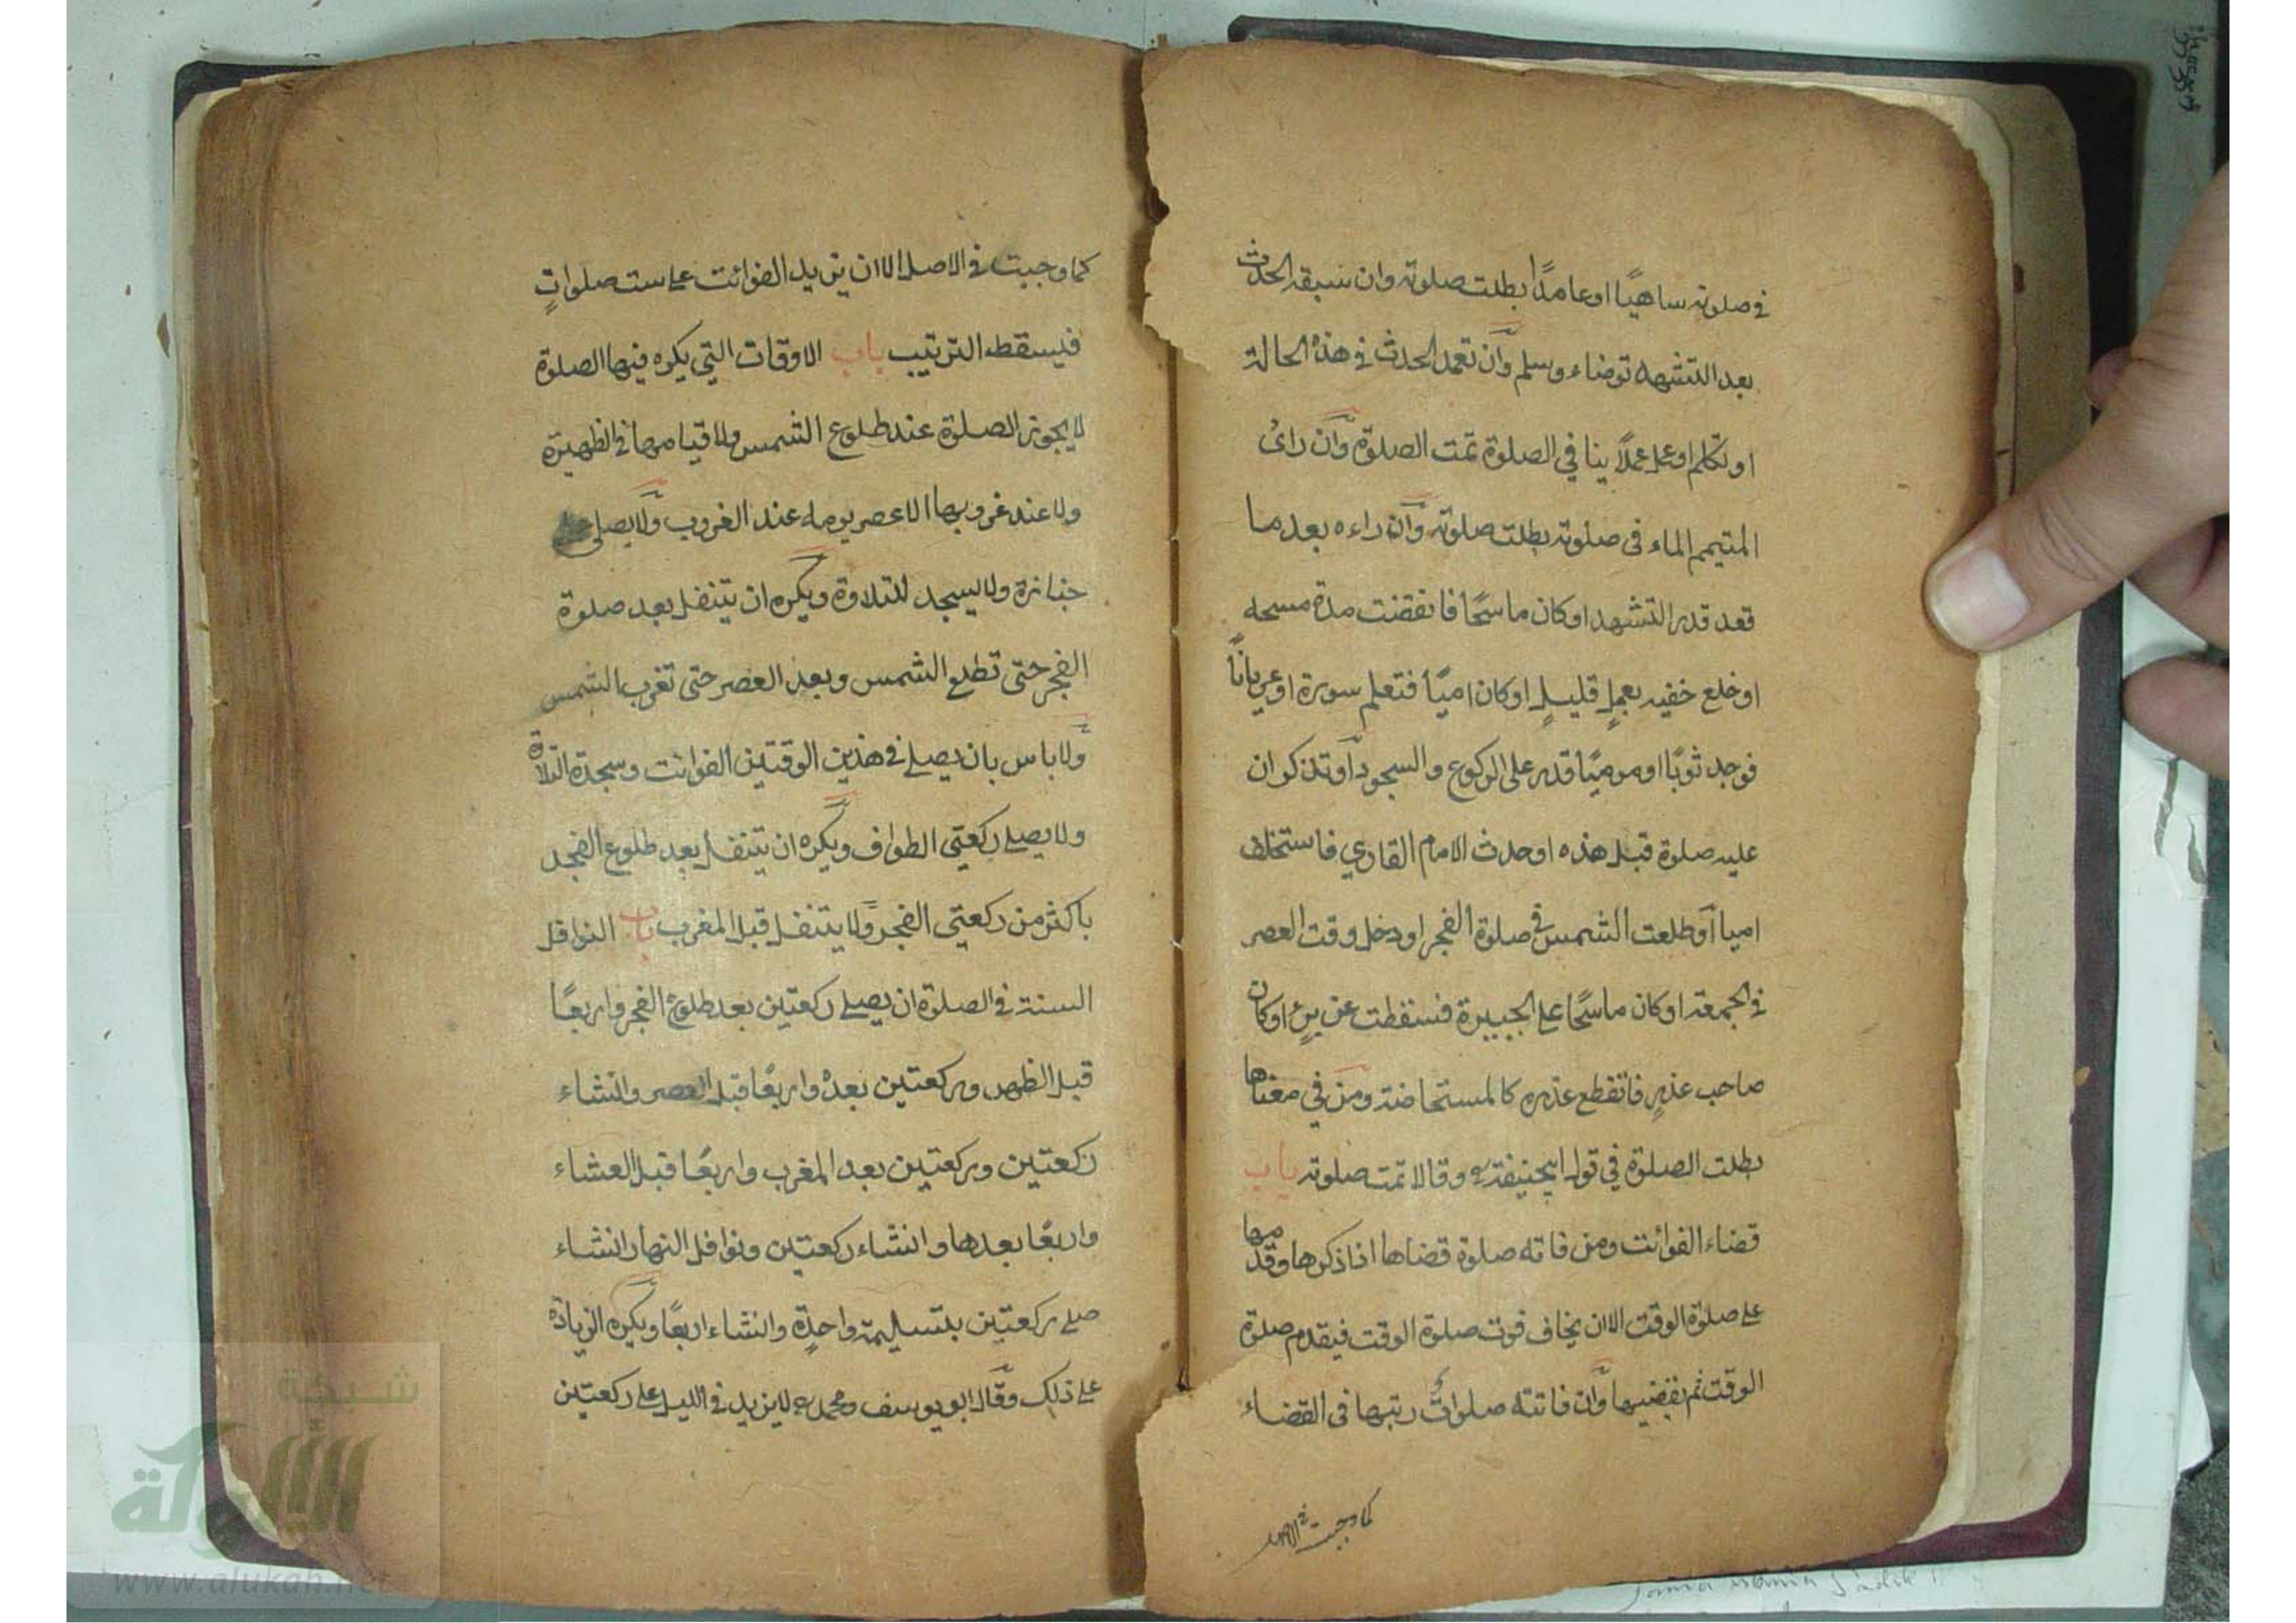 في صلوته ساهيًا او عامدًا بطلت صلوته وان سبقه الحدث
بعد التشهد توضاء وسلم وان تعمد الحدث في هذه الحالة
او تكلم او عمل عملًا ينافي الصلوة تمت الصلوة وان رائ
المتيمم الماء فى صلوته بطلت صلوته وان راءه بعد ما
قعد قدر التشهد او كان ماسحًا فانقضت مدة مسحه
او خلع خفيه بعملٍ قليلٍ او كان اميًا فتعلم سورة او عريانًا
فوجد ثوبًا او موميًا قدر على الركوع والسجود او تذكر ان
عليه صلوة قبل هذه او حدث الامام القاري فاستخلف
اميا او طلعت الشمس في صلوة الفجر او دخل وقت العصر
في الجمعة او كان ماسحًا على الجبيرة فسقطت عن برءٍ او كان
صاحب عذرٍ فانقطع عذره كالمستحاضة ومن في معناها
بطلت الصلوة في قول ابيحنيفة رح وقالا تمت صلوته باب
قضاء الفوائت ومن فاته صلوة قضاها اذا ذكرها وقدمها
على صلوة الوقت الا ان يخاف فوت صلوة الوقت فيقدم صلوة
الوقت ثم يقضيها وان فاتته صلوات رتبها فى القضاء
كما وجبت في الاصل
كما وجبت في الاصل الا ان يزيد الفوائت على ست صلواتٍ
فيسقط الترتيب باب الاوقات التي يكره فيها الصلوة
لا يجوز الصلوة عند طلوع الشمس ولا قيامها في الظهيرة
ولا عند غروبها الا عصر يومه عند الغروب ولا يصلى على
جنازة ولا يسجد للتلاوة ويكره ان يتنفل بعد صلوة
الفجر حتى تطلع الشمس وبعد العصر حتى تغرب الشمس
ولا باس بان يصلي في هذين الوقتين الفوائت وسجدة التلاوة
ولا يصلي ركعتي الطواف ويكره ان يتنفل بعد طلوع الفجر
باكثر من ركعتي الفجر ولا يتنفل قبل المغرب باب النوافل
السنة في الصلوة ان يصلي ركعتين بعد طلوع الفجر واربعًا
قبل الظهر وركعتين بعده واربعًا قبل العصر وانشاء
ركعتين وركعتين بعد المغرب واربعًا قبل العشاء
واربعًا بعدها وانشاء ركعتين ونوافل النهار انشاء
صلى ركعتين بتسليمة واحدةٍ وانشاء اربعًا ويكره الزيادة
على ذلك وقال ابو يوسف ومحمد رح لا يزيد في الليل على ركعتين
شبكة
الألوكة
www.alukah.net